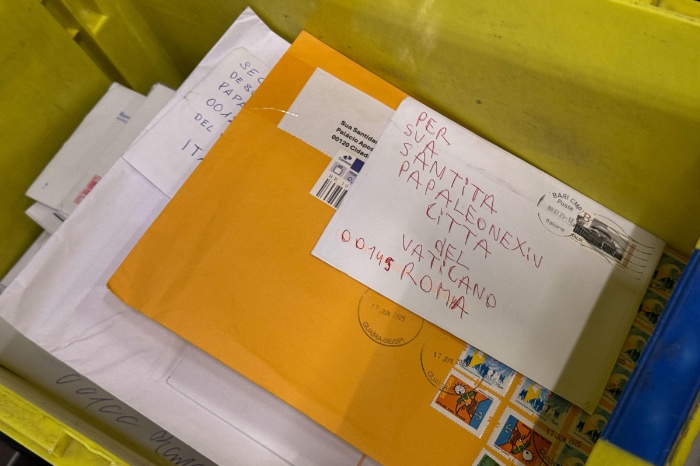 PER
SUA
SANTITA
PAPALEONEXIV
CITTA
DEL
VATICANO
00145 ROMA
BARI CMP
Poste
Italiane
Sua Santidad
Palácio Apos
00120 Cidad
SEG
DE S
PAPA
0012
DEL
ITA
17 JUN 2025
17 JUN 2025